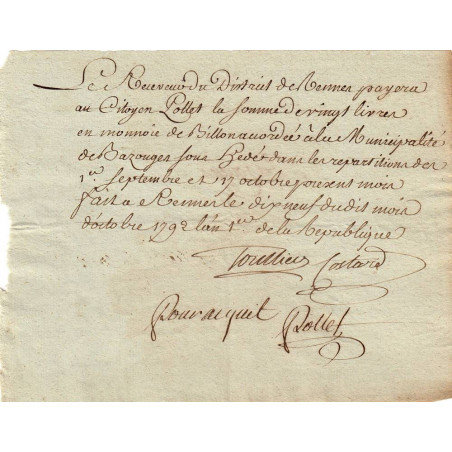 Le Receveur du District de Rennes payera
au Citoyen Pollet la somme de vingt livres
en monnoie de Billon accordée à la Municipalité
de Bazouges sous Hedé dans les repartitions des
1er Septembre et 17 octobre present mois
fait a Rennes le dix neuf du dit mois
d'octobre 1792 l'an 1er de la Republique
Costard
Pour acquit Pollet